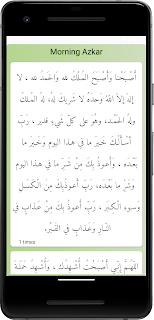 Morning Azkar
أَصْبَحْنَا وَأَصْبَحَ المُلْكُ لله وَالحَمدُ لله ، لا
إلهَ إلاّ اللّهُ وَحدَهُ لا شَريكَ لهُ، لهُ المُلكُ
ولهُ الحَمْد، وهُوَ على كلّ شَيءٍ قدير ، رَبِّ
أسْأَلُكَ خَيرَ ما في هذا اليوم وَخَيرَ ما
بَعْدَه ، وَأَعوذُ بِكَ مِنْ شَرِّ ما في هذا اليوم
وَشَرِّ ما بَعْدَه، رَبِّ أَعوذُبِكَ مِنَ الْكَسَلِ
وَسوءِ الْكِبَر ، رَبِّ أَعوذُبِكَ مِنْ عَذابٍ في
النّارِ وَعَذابٍ في القَبْر.
1 times
اللّهُمَّ إِنِّي أَصْبَحْتُ أُشْهِدُك ، وَأُشْهِدُ حَمَلَةَ